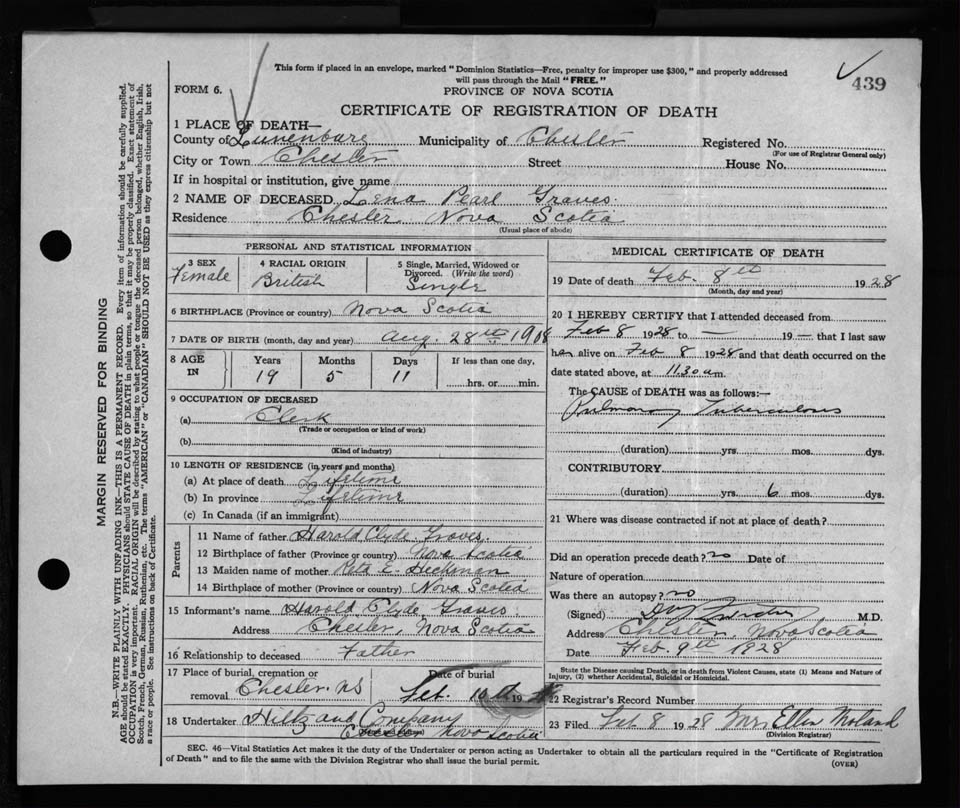 This form if placed in an envelope, marked "Dominion Statistics—Free, penalty for improper use $300," and properly addressed
will pass through the Mail "FREE."
439
FORM 6.
PROVINCE OF NOVA SCOTIA
CERTIFICATE OF REGISTRATION OF DEATH
1 PLACE OF DEATH—
County of Lunenburg Municipality of Chester Registered No.
(For use of Registrar General only)
City or Town Chester Street House No.
If in hospital or institution, give name
2 NAME OF DECEASED Lena Pearl Graves.
Residence Chester Nova Scotia
(Usual place of abode)
PERSONAL AND STATISTICAL INFORMATION
3 SEX
Female
4 RACIAL ORIGIN
British
5 Single, Married, Widowed or
Divorced. (Write the word)
Single
6 BIRTHPLACE (Province or country) Nova Scotia
7 DATE OF BIRTH (month, day and year) Aug. 28th 1908
8 AGE
IN
Years Months Days If less than one day,
19 5 11 hrs. or min.
9 OCCUPATION OF DECEASED
(a) Clerk
(Trade or occupation or kind of work)
(b)
(Kind of industry)
10 LENGTH OF RESIDENCE (in years and months)
(a) At place of death Lifetime
(b) In province Lifetime
(c) In Canada (if an immigrant)
Parents
11 Name of father Harold Clyde Graves.
12 Birthplace of father (Province or country) Nova Scotia
13 Maiden name of mother Reta E. Heckman
14 Birthplace of mother (Province or country) Nova Scotia
15 Informant's name Harold Clyde Graves.
Address Chester, Nova Scotia
16 Relationship to deceased Father
17 Place of burial, cremation or Date of burial
removal Chester. NS Feb. 10th 19
18 Undertaker Hiltz and Company
Chester Nova Scotia
MEDICAL CERTIFICATE OF DEATH
19 Date of death Feb. 8th 1928
(Month, day and year)
20 I HEREBY CERTIFY that I attended deceased from
Feb 8 1928 to — 19 — that I last saw
h alive on Feb 8 1928 and that death occurred on the
date stated above, at 11.30 a m.
The CAUSE of DEATH was as follows:—
Pulmonary Tuberculous
(duration) yrs. mos. dys.
CONTRIBUTORY
(duration) yrs. 6 mos. dys.
21 Where was disease contracted if not at place of death?
Did an operation precede death? no Date of
Nature of operation
Was there an autopsy? no
(Signed) M.D.
Address Chester, Nova Scotia
Date Feb. 9th 1928
State the Disease causing Death, or in death from Violent Causes, state (1) Means and Nature of
Injury, (2) whether Accidental, Suicidal or Homicidal.
22 Registrar's Record Number
23 Filed Feb 8 1928 Mrs Ellen
(Division Registrar)
SEC. 46—Vital Statistics Act makes it the duty of the Undertaker or person acting as Undertaker to obtain all the particulars required in the "Certificate of Registration
of Death" and to file the same with the Division Registrar who shall issue the burial permit.
(OVER)
MARGIN RESERVED FOR BINDING
N.B.—WRITE PLAINLY WITH UNFADING INK—THIS IS A PERMANENT RECORD. Every item of information should be carefully supplied.
AGE should be stated EXACTLY. PHYSICIANS should STATE CAUSE OF DEATH in plain terms, so that it may be properly classified. Exact statement of
OCCUPATION is very important. RACIAL ORIGIN will be described by stating to what people or tongue the deceased person belonged, whether English, Irish,
Scotch, French, German, Russian, Ruthenian, etc. The terms "AMERICAN" or "CANADIAN" SHOULD NOT BE USED as they express citizenship but not
a race or people. See instructions on back of Certificate.